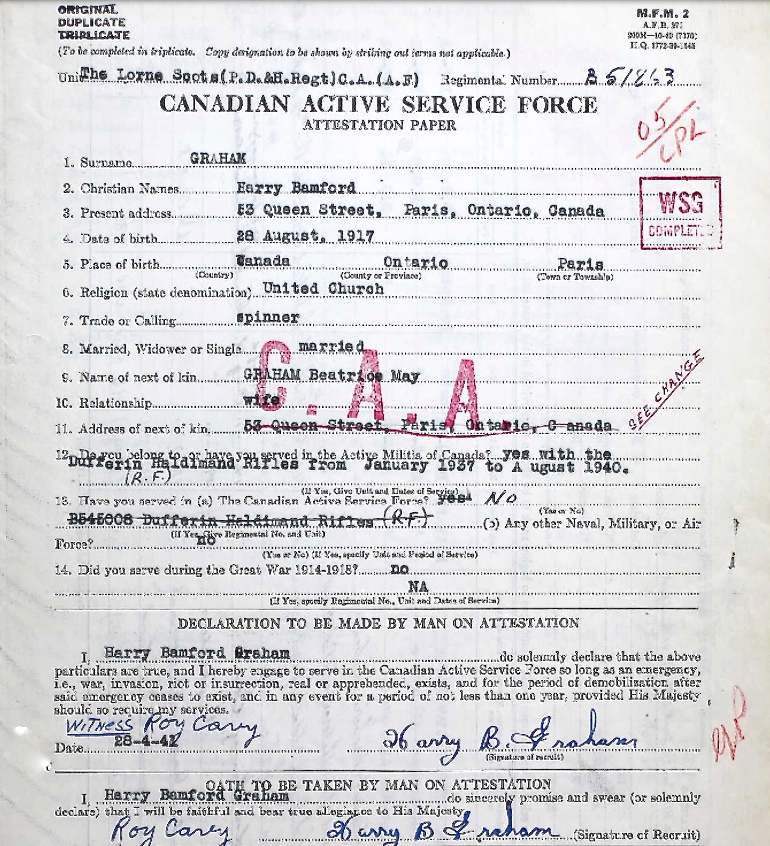 ORIGINAL
DUPLICATE
TRIPLICATE
M.F.M. 2
(To be completed in triplicate. Copy designation to be shown by striking out terms not applicable.)
Unit The Lorne Scots(P.D.&H.Regt)C.A.(A.F) Regimental Number
CANADIAN ACTIVE SERVICE FORCE
ATTESTATION PAPER
05/CPL
1. Surname GRAHAM
2. Christian Names Harry Bamford
WSG
COMPLETED
3. Present address 53 Queen Street, Paris, Ontario, Canada
4. Date of birth 28 August, 1917
5. Place of birth Canada Ontario Paris
(Country) (County or Province) (Town or Township)
6. Religion (state denomination) United Church
7. Trade or Calling spinner
8. Married, Widower or Single married
C.A.A
9. Name of next of kin GRAHAM Beatrice May
10. Relationship wife
11. Address of next of kin 53 Queen Street, Paris, Ontario, C anada
SEE CHANGE
12. Do you belong to or have you served in the Active Militia of Canada? yes with the
Dufferin Haldimand Rifles from January 1937 to A ugust 1940.
(R.F.)
(If Yes, Give Unit and Dates of Service)
13. Have you served in (a) The Canadian Active Service Force? yes No
(Yes or No)
B545008 Dufferin Haldimand Rifles (R.F.) (b) Any other Naval, Military, or Air
(If Yes, Give Regimental No. and Unit)
Force? no
(Yes or No) (If Yes, specify Unit and Period of Service)
14. Did you serve during the Great War 1914-1918? no
NA
(If Yes, specify Regimental No., Unit and Dates of Service)
DECLARATION TO BE MADE BY MAN ON ATTESTATION
I, Harry Bamford Graham do solemnly declare that the above
particulars are true, and I hereby engage to serve in the Canadian Active Service Force so long as an emergency,
i.e., war, invasion, riot or insurrection, real or apprehended, exists, and for the period of demobilization after
said emergency ceases to exist, and in any event for a period of not less than one year, provided His Majesty
should so require my services.
WITNESS Roy Carey
Date 28-4-42 Harry B. Graham
(Signature of recruit)
OATH TO BE TAKEN BY MAN ON ATTESTATION
I, Harry Bamford Graham do sincerely promise and swear (or solemnly
declare) that I will be faithful and bear true allegiance to His Majesty
Roy Carey Harry B Graham (Signature of Recruit)